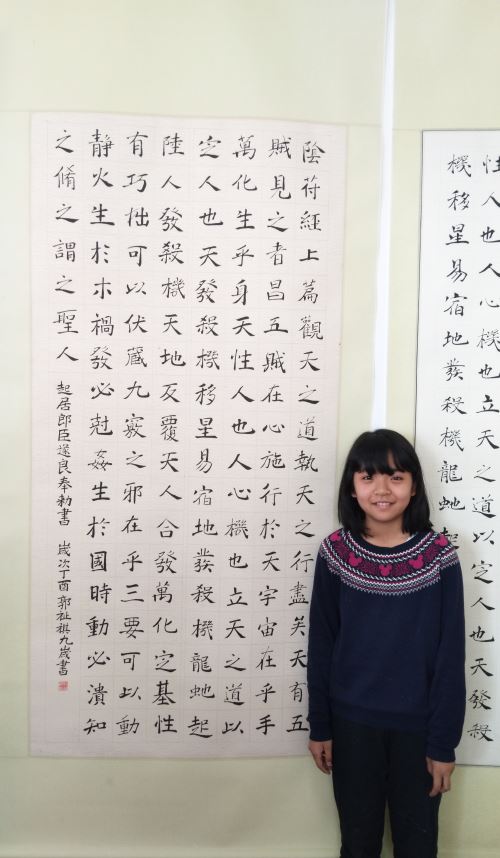 陰苻經上篇觀天之道執天之行盡矣天有五
賊見之者昌五賊在心施行於天宇宙在乎手
萬化生乎身天性人也人心機也立天之道以
定人也天發殺機移星易宿地發殺機龍虵起
陸人發殺機天地反覆天人合發萬化定基性
有巧拙可以伏藏九竅之邪在乎三要可以動
靜火生於木禍發必尅姦生於國時動必潰知
之脩之謂之聖人
起居郎臣遂良奉勅書 歲次丁酉 郭祉祺九歲書
性人也人心機也立天之道以定人也天發殺
機移星易宿地發殺機龍虵起